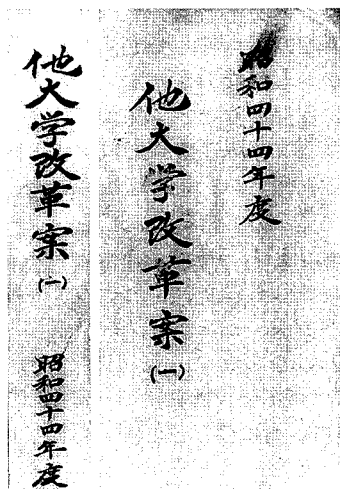 昭和四十四年度
他大学改革案(一)
他大学改革案(一) 昭和四十四年度